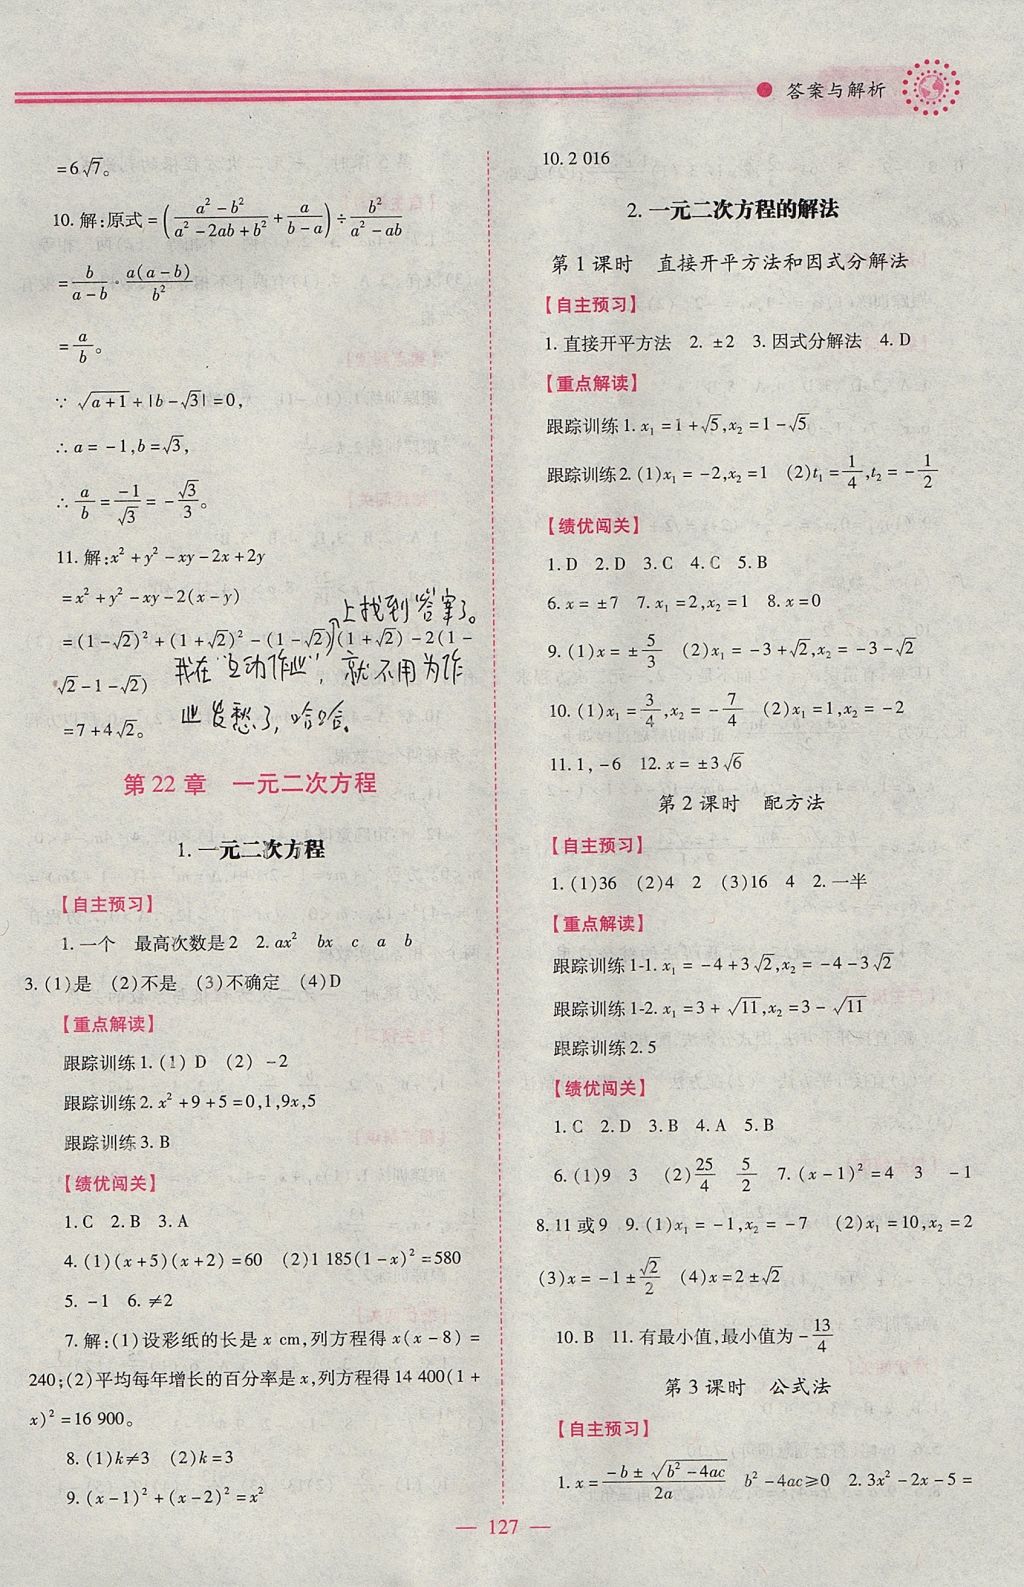 答案与解析
=6√7。
10.解:原式=((a²-b²)/(a²-2ab+b²)+a/(b-a))÷b²/(a²-ab)
=b/(a-b)·a(a-b)/b²
=a/b。
∵√(a+1)+|b-√3|=0,
∴a=-1,b=√3,
∴a/b=-1/√3=-√3/3。
11.解:x²+y²-xy-2x+2y
=x²+y²-xy-2(x-y)
=(1-√2)²+(1+√2)²-(1-√2)(1+√2)-2(1-
√2-1-√2)
=7+4√2。
我在"互动作业"上找到答案了。
就不用为作
业发愁了,哈哈。
第22章 一元二次方程
1.一元二次方程
【自主预习】
1.一个 最高次数是2 2.ax² bx c a b
3.(1)是 (2)不是 (3)不确定 (4)D
【重点解读】
跟踪训练1.(1) D (2) -2
跟踪训练2.x²+9+5=0,1,9x,5
跟踪训练3.B
【绩优闯关】
1.C 2.B 3.A
4.(1)(x+5)(x+2)=60 (2)1 185(1-x)²=580
5.-1 6.≠2
7.解:(1)设彩纸的长是x cm,列方程得x(x-8)=
240;(2)平均每年增长的百分率是x,列方程得14 400(1+
x)²=16 900。
8.(1)k≠3 (2)k=3
9.(x-1)²+(x-2)²=x²
10.2 016
2.一元二次方程的解法
第1课时 直接开平方法和因式分解法
【自主预习】
1.直接开平方法 2.±2 3.因式分解法 4.D
【重点解读】
跟踪训练1.x₁=1+√5,x₂=1-√5
跟踪训练2.(1)x₁=-2,x₂=1 (2)t₁=1/4,t₂=-1/2
【绩优闯关】
1.D 2.D 3.C 4.C 5.B
6.x=±7 7.x₁=2,x₂=1 8.x=0
9.(1)x=±5/3 (2)x₁=-3+√2,x₂=-3-√2
10.(1)x₁=3/4,x₂=-7/4 (2)x₁=1,x₂=-2
11.1,-6 12.x=±3√6
第2课时 配方法
【自主预习】
1.(1)36 (2)4 2 (3)16 4 2.一半
【重点解读】
跟踪训练1-1.x₁=-4+3√2,x₂=-4-3√2
跟踪训练1-2.x₁=3+√11,x₂=3-√11
跟踪训练2.5
【绩优闯关】
1.C 2.D 3.B 4.A 5.B
6.(1)9 3 (2)25/4 5/2 7.(x-1)²=4 3 -1
8.11或9 9.(1)x₁=-1,x₂=-7 (2)x₁=10,x₂=2
(3)x=-1±√2/2 (4)x=2±√2
10.B 11.有最小值,最小值为-13/4
第3课时 公式法
【自主预习】
1.x=(-b±√(b²-4ac))/2a b²-4ac≥0 2.3x²-2x-5=
— 127 —